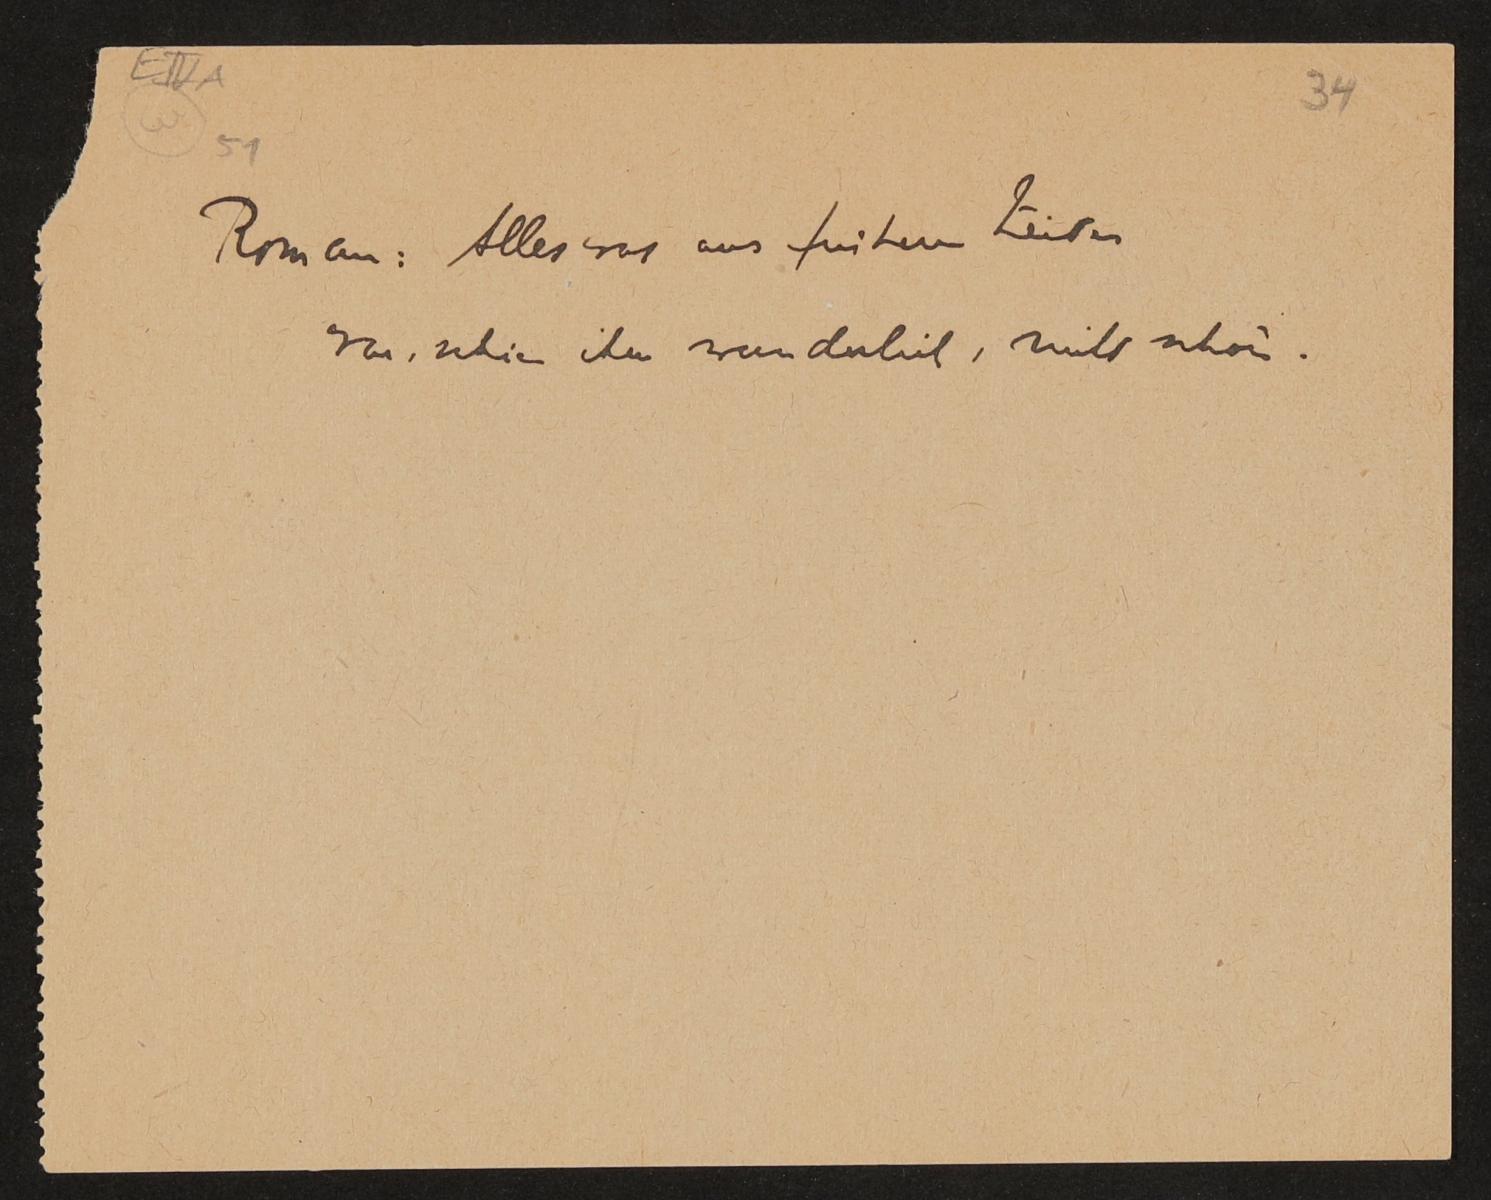 E IV A
34
3
51
Roman: Alles was aus frühern Zeiten
war, schien ihm wunderlich, nicht schön.